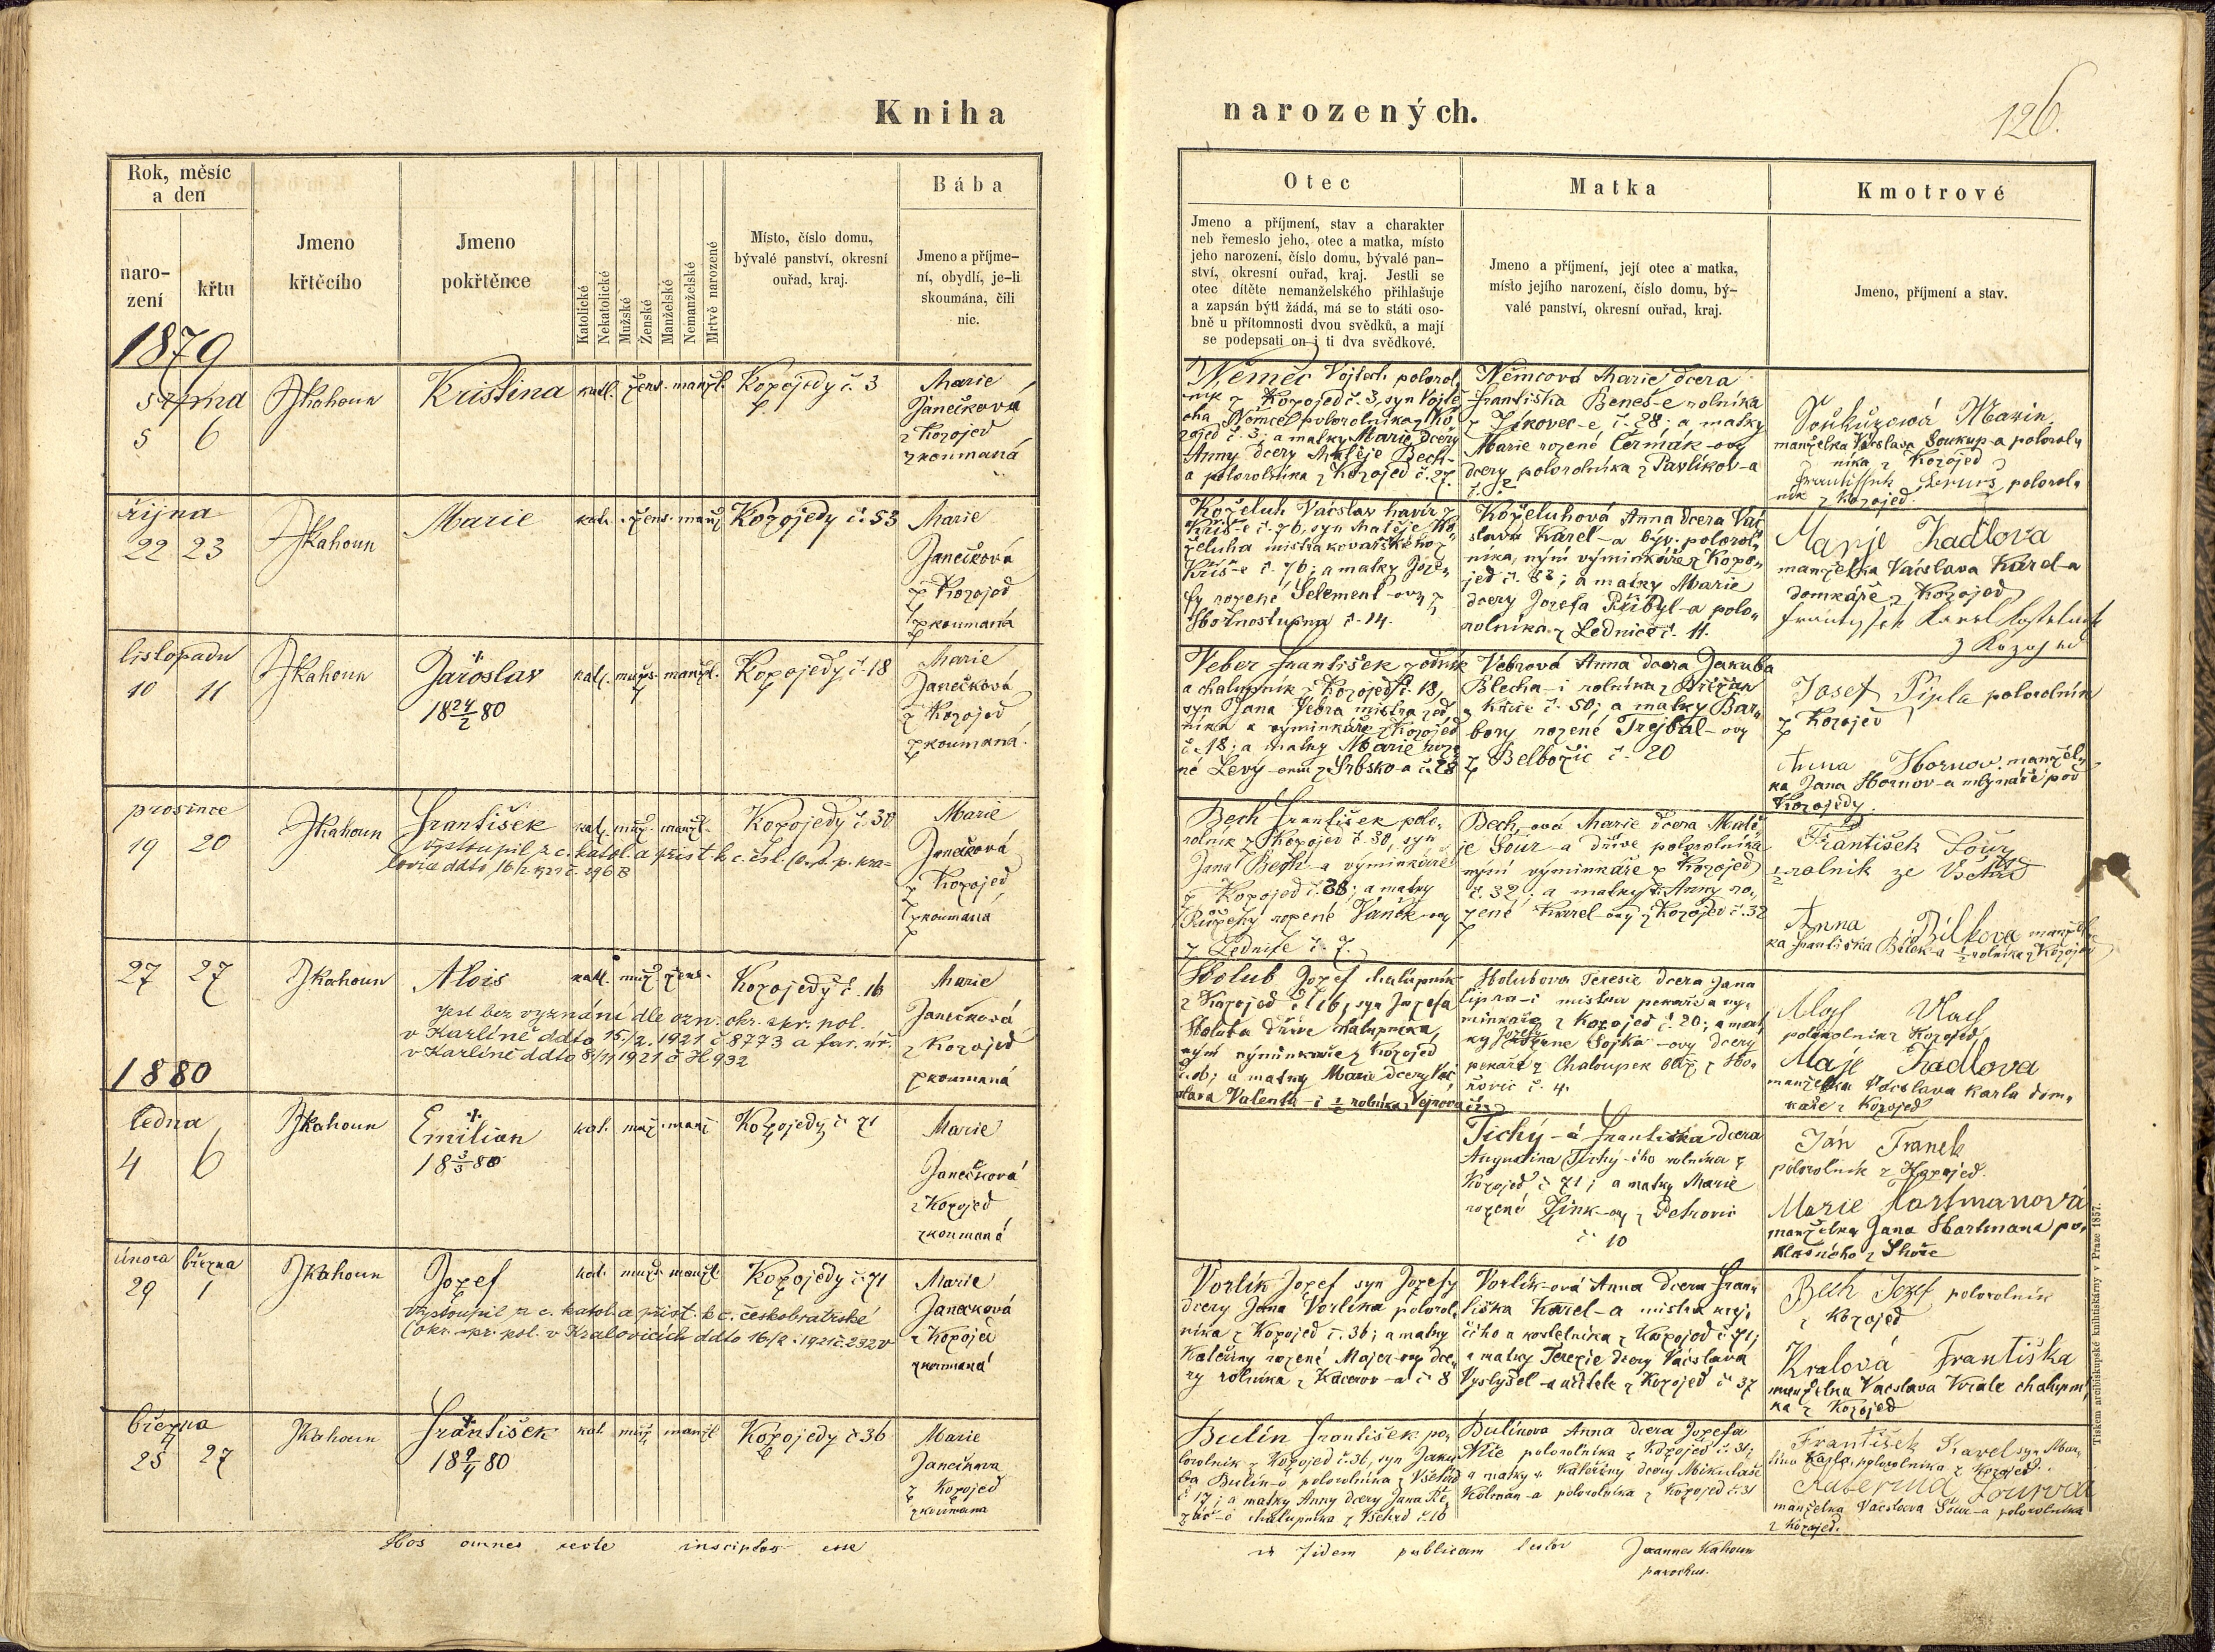 Kniha
Rok, měsíc
a den
naro-
zení
křtu
Jmeno
křtěcího
Jmeno
pokřtěnce
Katolické
Nekatolické
Mužské
Ženské
Manželské
Nemanželské
Mrtvě narozené
Místo, číslo domu,
bývalé panství, okresní
ouřad, kraj.
Bába
Jmeno a příjme-
ní, obydlí, je-li
skoumána, čili
nic.
1879
srpna
5 6
JKahoun
Kristina
katl. žens. manžl.
Kozojedy č. 3
Marie
Janečkova
z Kozojed
zkoumaná
října
22 23
JKahoun
Marie
kat. žens. manž
Kozojedy č. 53
Marie
Janečková
z Kozojed
zkoumaná
listopadu
10 11
JKahoun
Jaroslav
18 24/2 80
katl. mužs. manžl.
Kozojedy č. 18
Marie
Janečková
z Kozojed
zkoumaná.
prosince
19 20
JKahoun
František
katl. muž. manžl.
Kozojedy č. 30
vystoupil z c. katol. a přist. k c. čsl.
Marie
Janečková
z Kozojed
zkoumaná
27 27
JKahoun
Alois
katl. muž žens.
Kozojedy č. 16
jest bez vyznání dle ozn. okr. spr. pol.
v Karlíně ddto 15./2. 1921 č 8773 a far. úř.
v Karlíně ddto
Marie
Janečková
z Kozojed
zkoumaná
1880
ledna
4 6
JKahoun
Emilian
18 3/3 80
kat. muž. manž
Kozojedy č 71
Marie
Janečková
z Kozojed
zkoumaná
února března
29 1
JKahoun
Jozef
kat. mužs. manžl
Kozojedy č. 71
vystoupil z c. katol. a přist. k c. českobratrské
(okr. spr. pol. v Kralovicích ddto 16/2. 1921 č.
Marie
Janečková
z Kozojed
zkoumaná
března
25 27
JKahoun
František
18 9/4 80
kat. muž manžl
Kozojedy č 36
Marie
Janečkova
z Kozojed
zkoumana
Hos omnes recte inscriptos esse
narozených.
126.
Otec
Jmeno a příjmení, stav a charakter
neb řemeslo jeho, otec a matka, místo
jeho narození, číslo domu, bývalé pan-
ství, okresní ouřad, kraj. Jestli se
otec dítěte nemanželského přihlašuje
a zapsán býti žádá, má se to státi oso-
bně u přítomnosti dvou svědků, a mají
se podepsati on i ti dva svědkové.
Matka
Jmeno a příjmení, její otec a matka,
místo jejího narození, číslo domu, bý-
valé panství, okresní ouřad, kraj.
Kmotrové
Jmeno, příjmení a stav.
Němec Vojtech polorol
ník z Kozojed č. 3, syn Vojtě
cha Němce polorolníka z Ko
zojed č. 3; a matky Marie dcery
Anny dcery Matěje Bech-
a polorolníka z Kozojed č. 27.
Němcová Marie dcera
Františka Beneš-e rolníka
z Zíkovec-e č. 28; a matky
Marie rozené Čermák-ovy
dcery polorolníka z Pavlíkov-a
Marie
manželka Václava Soukup-a poloroln
níka z Kozojed
polorol
ník z Kozojed.
Koželuh Václav havíř z
Kříš-e č. 76, syn Matěje Ko
želuha mistra kovářského z
Kříš-e č. 76; a matky Joze
fy rozené Selement-ovy z
č. 14.
Koželuhová Anna dcera Vác
slava Karel-a býv. polorol
níka, nyní výminkáře z Kozo
jed č. 53; a matky Marie
dcery Jozefa Přibyl-a polo
rolníka z Lednice č. 11.
Marje Kadlova
manželka Václava Karel-a
domkáře z Kozojed
Frantyssek Karel
z Kozojed
Veber František zedník
a chalupník z Kozojed č. 18,
syn Jana Vebra mistra zed
níka a výminkáře z Kozojed
č. 18; a matky Marie roze
né Levý-ovic z Srbsko-a č. 28
Vebrová Anna dcera Jakuba
Blecha-i rolníka z
č. 50; a matky Bar
bory rozené Trejbal-ovy
z Belbožic č. 20
Josef Pipla polorolník
z Kozojed
Anna Hornov. manžel
ka Jana Hornov-a mlynáře pod
Kozojedy.
Bech František polo
rolník z Kozojed č. 30, syn
Jana Bech-a výminkáře
z Kozojed č. 38; a matky
Růženy rozené Vaněk-ovy
z Lednice č. 7.
Bech-ová Marie dcera Matě
je Sour-a dříve polorolníka
nyní výminkáře z Kozojed
č. 32; a matky Anny ro
zené Karel-ovy z Kozojed č. 32
František Sour
1/2 rolník ze Všehrd
Anna Bílkova manžel
ka Františka Bílek-a 1/2 rolníka z Kozojed
Holub Jozef chalupník
z Kozojed č. 16, syn Jozefa
Holuba dříve chalupníka,
nyní výminkáře z Kozojed
č. 16; a matky Marie dcery Vác
slava Valenta-i 1/2 rolníka z Vejrova
Holubova Teresie dcera Jana
mistra pekaře a vý
minkáře z Kozojed č. 20; a mat
ky Jozefy rozené Sojka-ovy dcery
pekaře z Chaloupek
č. 4.
Aloys Vlach
polorolník z Kozojed
Marje Kadlova
manželka Václava Karla dom
káře z Kozojed
Tichý-á Františka dcera
Augustina Tichý-ího rolníka z
Kozojed č 71; a matky Marie
rozené Zink-ovy z Petrovic
č 10
Ján Franek
polorolník z Kozojed.
Marie Hartmanová
manželka Jana Hartmana po
klasného z Shoře
Vorlík Jozef syn Jozefy
dcery Jana Vorlíka polorol
níka z Kozojed č. 36; a matky
Kateřiny rozené Majer-ovy dce
ry rolníka z Kacerov-a č 8
Vorlík-ová Anna dcera Fran
tiška Karel-a mistra krej
čího a kostelníka z Kozojed č 71;
a matky Terezie dcery Václava
Vyslyšel-a učitele z Kozojed č 37
Bech Jozef polorolník
z Kozojed
Kralová Františka
manželka Vacslava Krále chalupní
ka z Kozojed
Bulín František po
lorolník z Kozojed č. 36, syn Jaku
ba Bulín-a polorolníka z Všehrd
č 17; a matky Anny dcery Jana Ře
záč-e chalupníka z Všehrd č. 16
Bulínova Anna dcera Jozefa
polorolníka z Kozojed č. 31;
a matky Kateřiny dcery Mikuláše
Kolman-a polorolníka z Kozojed č 31
František Karel syn Mar
tina Karla, polorolníka z Kozojed.
Kateřina Sourova
manželka Václava Sour-a polorolníka
z Kozojed.
in fidem publicam testor Joannes Kahoun
parochus.
Tiskem arcibiskupské knihtiskárny v Praze 1857.